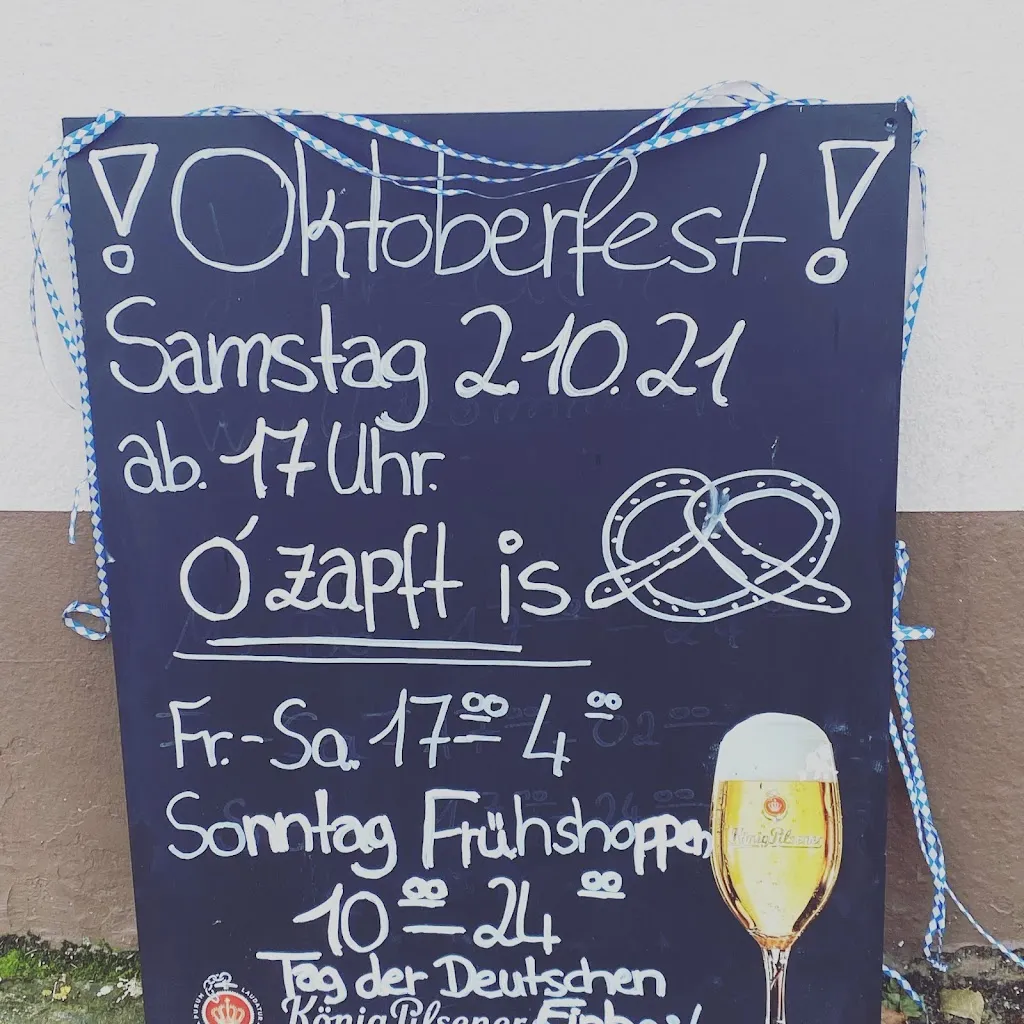 ! Oktoberfest !
Samstag 2.10.21
ab. 17 Uhr.
O'zapft is
Fr.-Sa. 17 00 - 4 00
Sonntag Frühshoppen
10 00 - 24 00
Tag der Deutschen
Einheit
König Pilsener
König Pilsener
PURUM
LAUDATUR